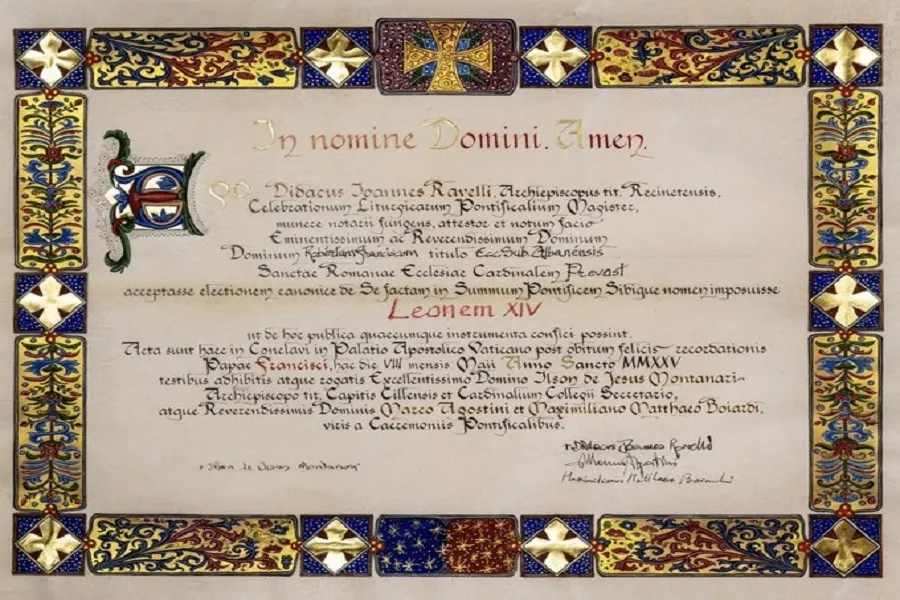 In nomine Domini. Amen.
Ego Didacus Ioannes Ravelli, Archiepiscopus tit. Recinetensis,
Celebrationum Liturgicarum Pontificalium Magister,
munere notarii fungens, attestor et notum facio
Eminentissimum ac Reverendissimum Dominum
Dominum Robertum Franciscum titulo Ecc. Sub. Albanensis
Sanctae Romanae Ecclesiae Cardinalem Prevost
acceptasse electionem canonice de Se factam in Summum Pontificem Sibique nomen imposuisse
Leonem XIV
ut de hoc publica quaecumque instrumenta confici possint.
Acta sunt haec in Conclavi in Palatio Apostolico Vaticano post obitum felicis recordationis
Papae Francisci, hac die VIII mensis Maii Anno Sancto MMXXV
testibus adhibitis atque rogatis Excellentissimo Domino Ilson de Jesus Montanari
Archiepiscopo tit. Capitis Cillensis et Cardinalium Collegii Secretario,
atque Reverendissimis Dominis Marco Agostini et Maximiliano Matthaeo Boiardi,
viris a Caeremoniis Pontificalibus.
+ Didacus Ioannes Ravelli
Marcus Agostini
+ Ilson de Jesus Montanari